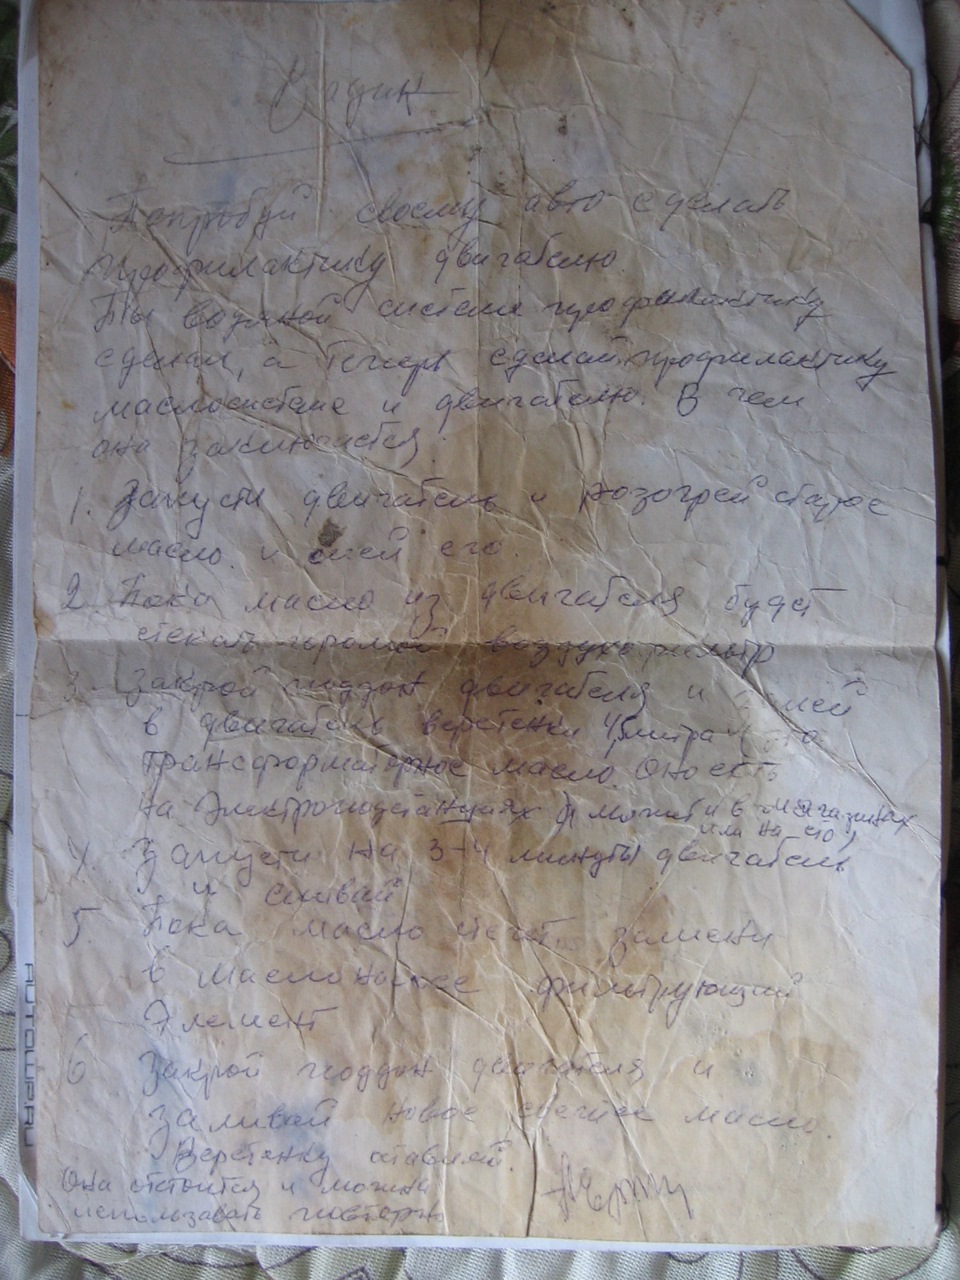 Попробуй своему авто сделать
профилактику двигателю.
Ты водяной системе профилактику
сделал, а теперь сделай профилактику
маслосистеме и двигателю. В чем
она заключается.
1. Запусти двигатель и розогрей старое
масло и слей его.
2. Пока масло из двигателя будет
стекать промой воздухофильтр
3. Закрой поддон двигателя и лей
в двигатель веретенки 4,5 литра это
трансформаторное масло. Оно есть
на электроподстанциях и может и в магазинах
или на СТО,
4. Запусти на 3-4 минуты двигатель
и сливай
5. Пока масло течет замени
в маслонасосе фильтрующий
элемент
6 Закрой поддон двигателя и
заливай новое свежее масло.
Веретенку оставляй.
Она отстоится и можно
использовать повторно
AUTOWP.RU